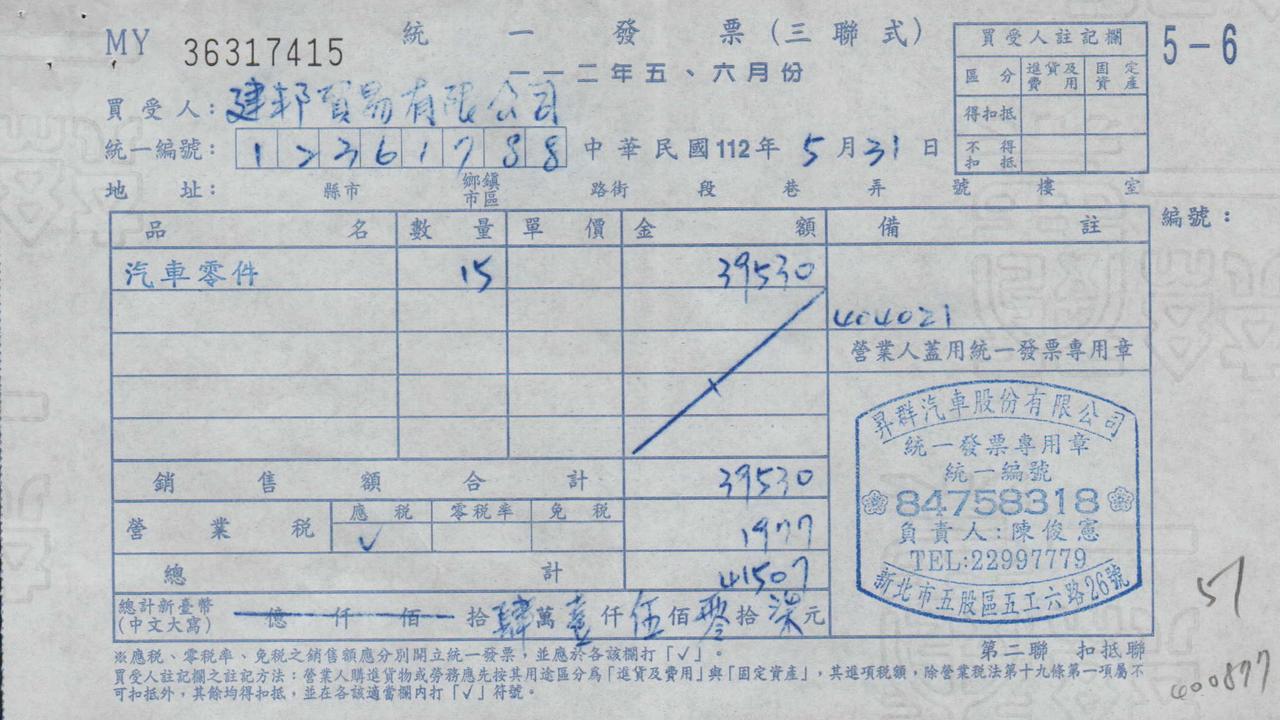 MY 36317415
統一發票(三聯式)
一一二年五、六月份
5-6
買受人註記欄
區分 進貨及費用 固定資產
得扣抵
不得扣抵
買受人:建邦貿易有限公司
統一編號:12361788 中華民國112年5月31日
地址: 縣市 鄉鎮市區 路街 段 巷 弄 號 樓 室
編號:
品名 數量 單價 金額 備註
汽車零件 15 39530
404021
營業人蓋用統一發票專用章
昇群汽車股份有限公司
統一發票專用章
統一編號
84758318
負責人:陳俊憲
TEL:22997779
新北市五股區五工六路26號
銷售額合計 39530
營業稅 應稅 零稅率 免稅 1977
✓
總計 41507
總計新臺幣(中文大寫) 億仟佰拾肆萬壹仟伍佰零拾柒元
57
第二聯 扣抵聯
※應稅、零稅率、免稅之銷售額應分別開立統一發票,並應於各該欄打「✓」。
買受人註記欄之註記方法:營業人購進貨物或勞務應先按其用途區分為「進貨及費用」與「固定資產」,其進項稅額,除營業稅法第十九條第一項屬不
可扣抵外,其餘均得扣抵,並在各該適當欄內打「✓」符號。
400877